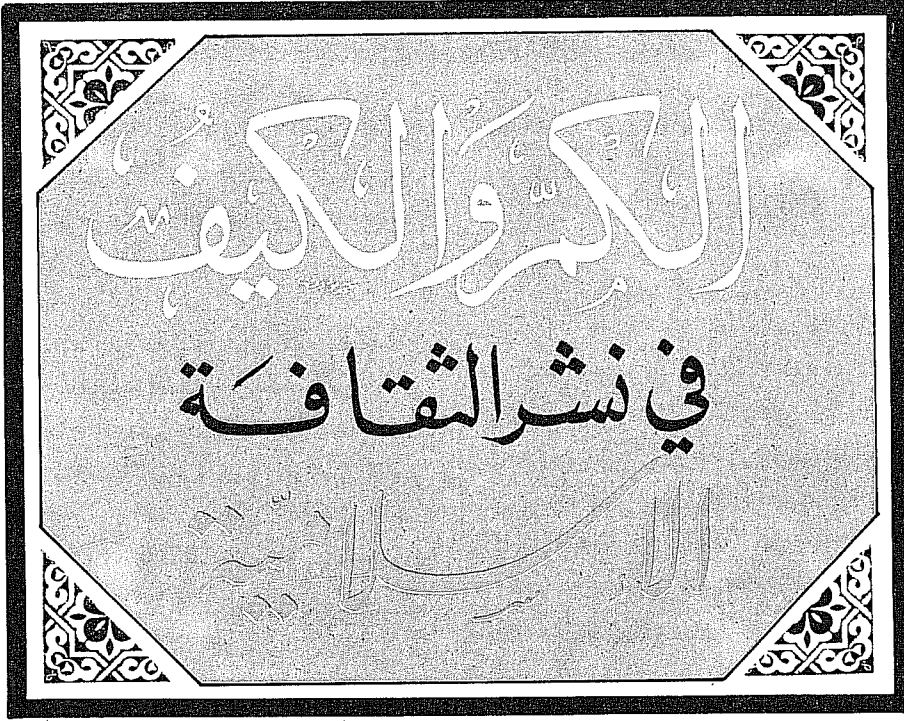 الكمّ وَالكيف
في نشر الثقافَة
الاسلاميّة